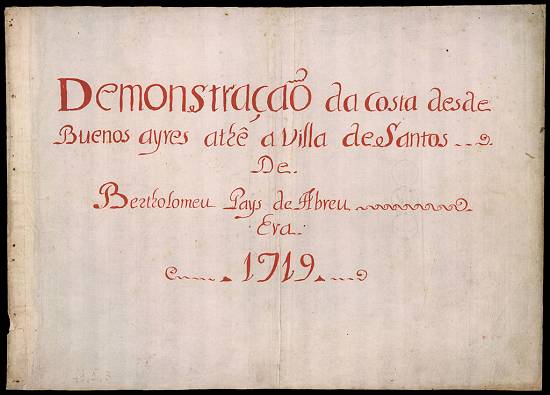 Demonstração da Costa desde
Buenos ayres athê a Villa de Santos
De
Bertholomeu Pays de Abreu
Era
1719